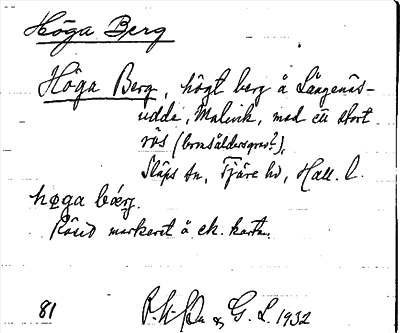 Höga Berg
Höga Berg, högt berg å Långenäs-
udde, Malevik, med ett stort
rös (bronsåldersgrav?),
Släps sn, Fjäre hd, Hall. l.
høga bærg.
Röset markerat å ek. karta.
81 & G. L. 1932